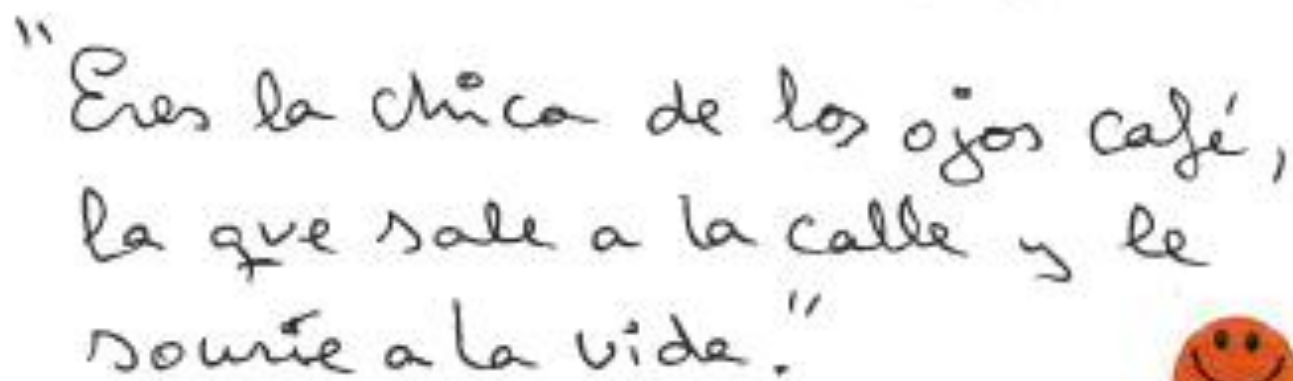 "Eres la chica de los ojos café,
la que sale a la calle y le
sonríe a la vida."